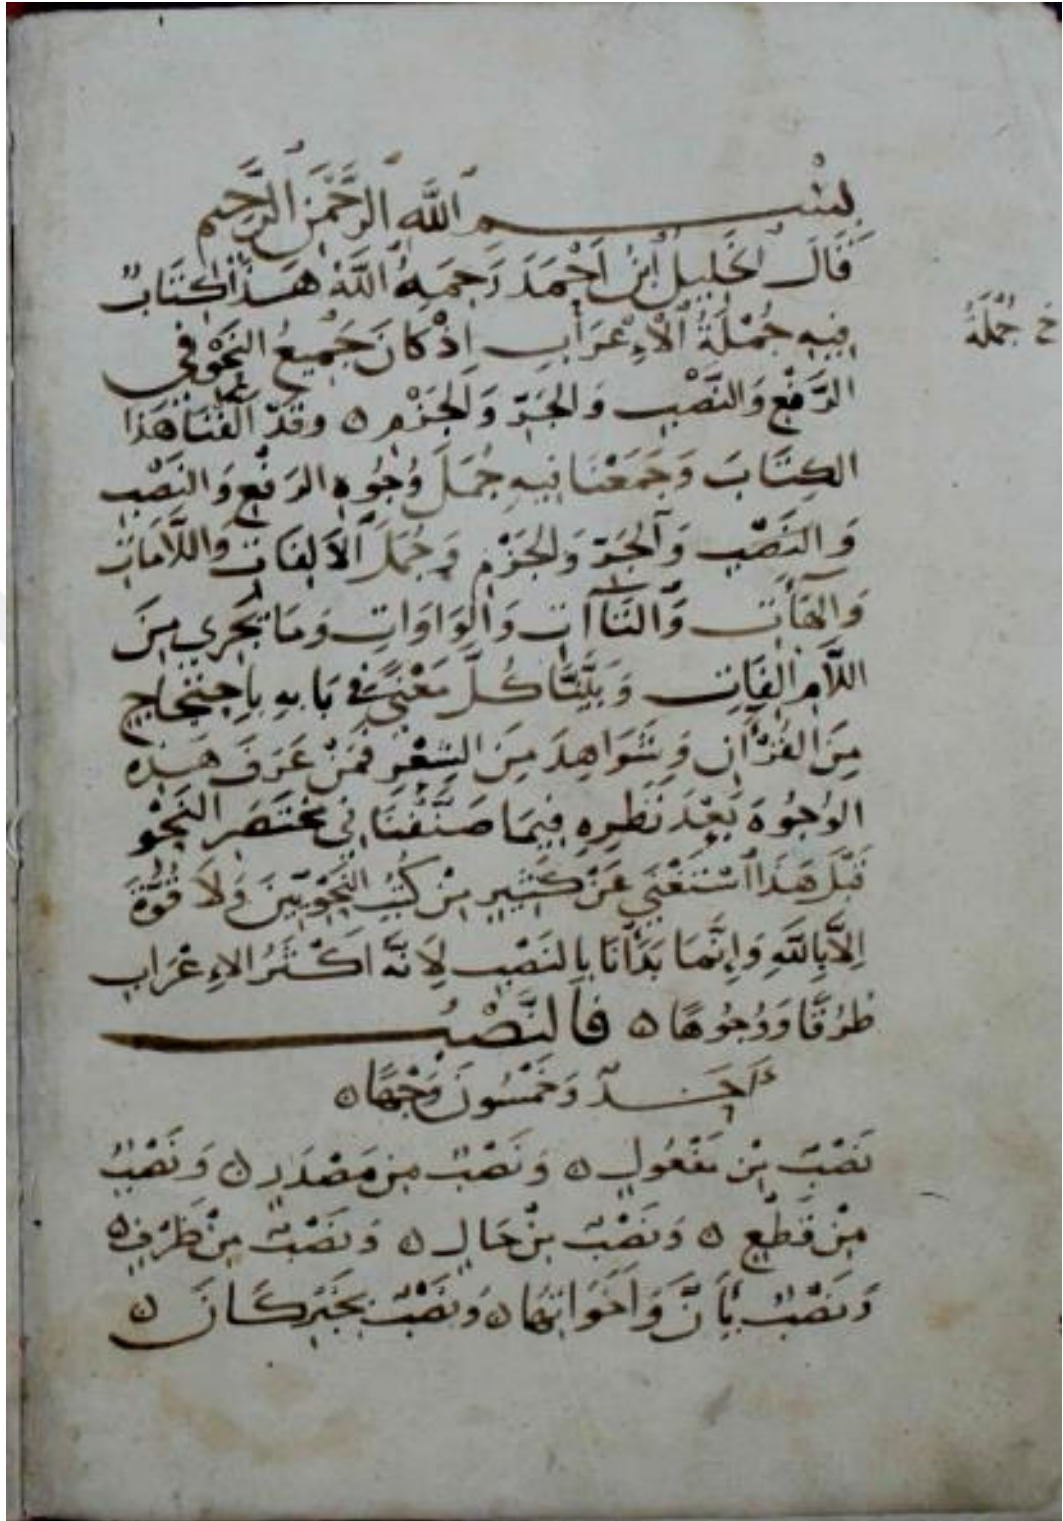 بِسْمِ اللَّهِ الرَّحْمَنِ الرَّحِيمِ
قَالَ الْخَلِيلُ ابْنُ اَحْمَدَ رَحِمَهُ اللَّهُ هَذَا الْكِتَابُ
فِيهِ جُمْلَةُ الْاِعْرَابِ اِذْ كَانَ جَمِيعُ النَّحْوِ فِي
خ جُمَلَةُ
الرَّفْعِ وَالنَّصْبِ وَالجَرِّ وَالجَزْمِ ه وَقَدْ اَلَّفْنَا هَذَا
الكِتَابَ وَجَمَعْنَا فِيهِ جُمَلَ وُجُوهِ الرَفْعِ وَالنَصْبِ
وَالنَصْبِ وَالْجَرِّ وَالجَزْمِ وَجُمَلَ الْاَلِفَاتِ وَاللَّامَاتِ
وَالْهَآتِ وَالتَّاآتِ وَالْوَاوَاتِ وَمَا يَجْرِي مِنَ
اللَّامِ الِفَاتِ وَبَيَّنَّا كُلَّ مَعْنًى فِي بَابِهِ بِاحْتِجَاجٍ
مِنَ القُرْآنِ وَشَوَاهِدَ مِنَ الشِعْرِ فَمَنْ عَرَفَ هَذِهِ
الوُجُوهَ بَعْدَ نَظَرِهِ فِيمَا صَنَّفْنَا فِي مُخْتَصَرِ النَحْوِ
قَبْلَ هَذَا اسْتَغْنَي عَنْ كَثِيرٍ مِنْ كُتُبِ النَحْوِيِّينَ وَلَا قُوَّةَ
اِلَّا بِاللَّهِ وَاِنَّمَا بَدَأْنَا بِالنَصْبِ لِاَنَّهُ اَكْثَرُ الاِعْرَابِ
طُرُقًا وَوُجُوهًا ه فَالنَّصْبُ
اَحَدٌ وَخَمْسُونَ وَجْهًا ه
نَصْبٌ مِنْ مَفْعُولٍ ه وَنَصْبٌ مِنْ مَصْدَرٍ ه وَنَصْبٌ
مِنْ قَطْعٍ ه وَنَصْبٌ مِنْ حَالٍ ه وَنَصْبٌ مِنْ ظَرْفٍ ه
وَنَصْبٌ بِاَنَّ وَاَخَوَاتِهَا ه وَنَصْبٌ بِخَبَرِ كَانَ ه